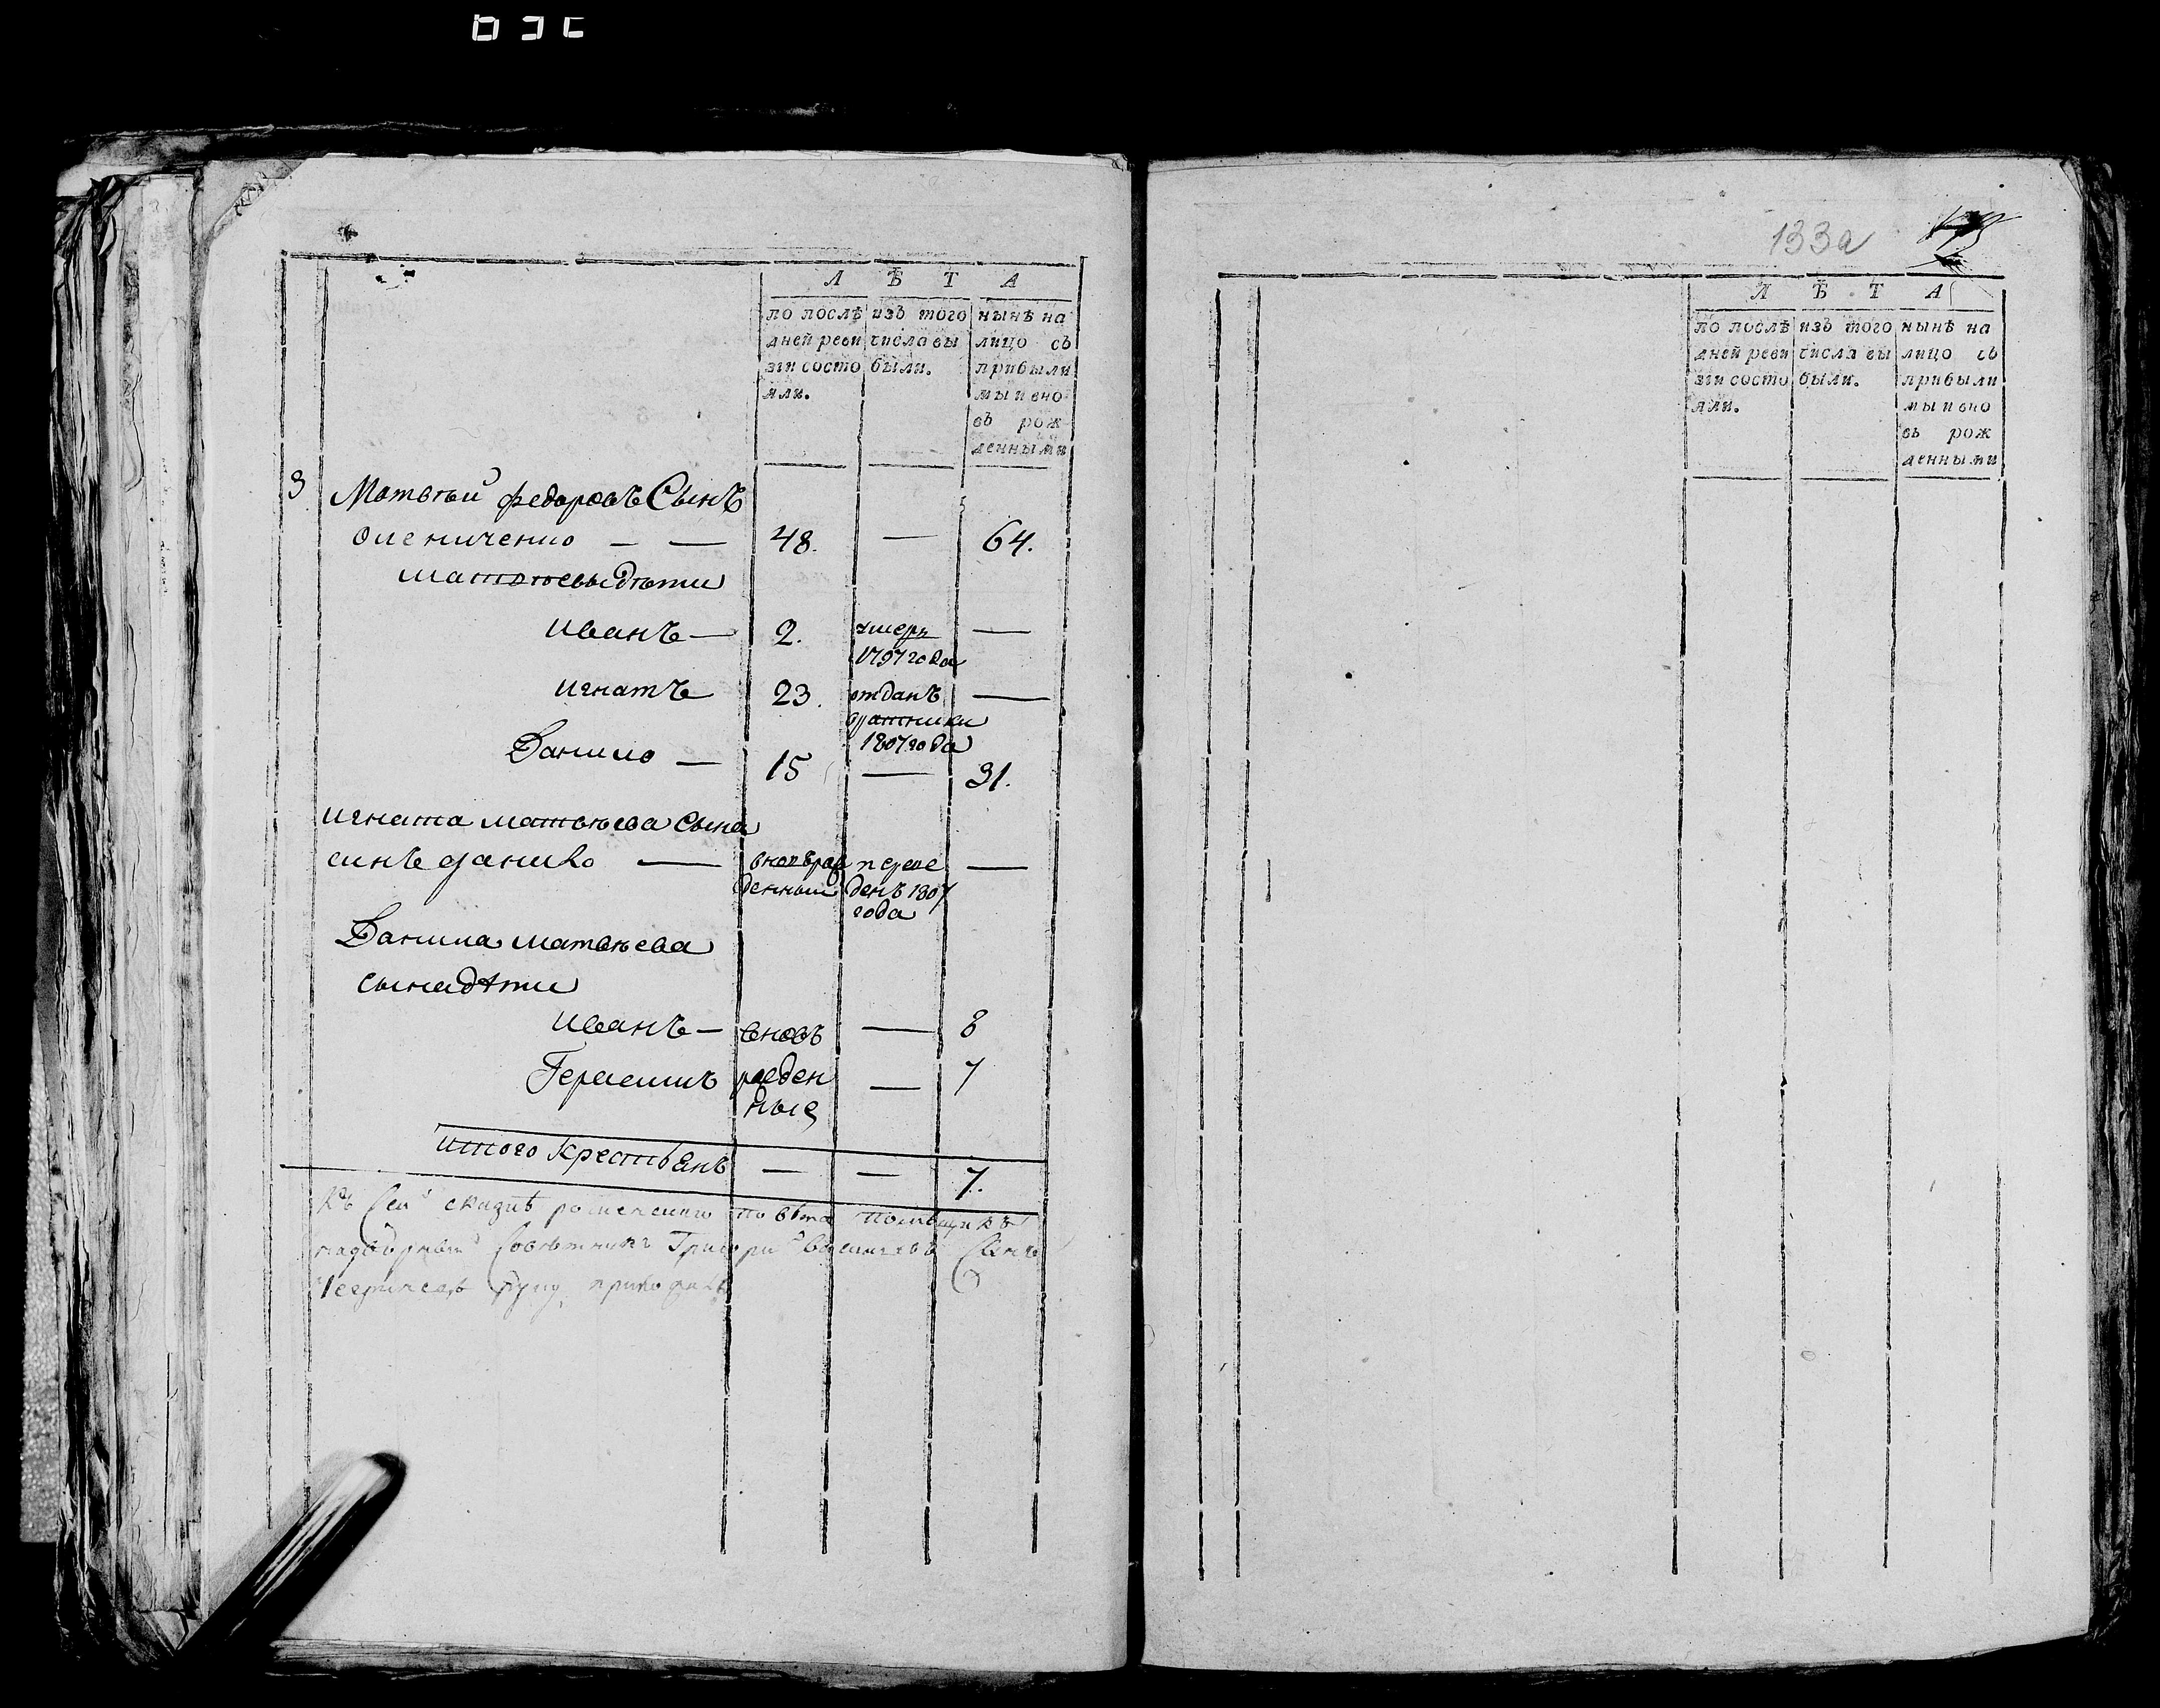 Л Ѣ Т А
по послѣ
дней реви
зіи состо
яли.
изъ того
числа вы
были.
нынѣ на
лицо съ
прибыли
ми и вно
въ рож
денными
3 Матвѣй федоровъ Сынъ
48. — 64.
матвѣевы дѣти
иванъ — 2. умеръ —
1797 года
игнатъ 23. отданъ —
1807 года
Данило — 15 — 31.
игната матвѣева сына
синъ данило — вновърож перевe —
денный денъ 1807
года
Данила матвѣева
сына дѣти
иванъ — вновъ — 8
Герасимъ рожден — 7
ные
итого крестьянъ — — 7.
Къ Сей сказкѣ повѣта помѣщикъ
надворный Совѣтникъ Григорий Сынъ
руку приложилъ
133а
Л Ѣ Т А
по послѣ
дней реви
зіи состо
яли.
изъ того
числа вы
были.
нынѣ на
лицо съ
прибыли
ми и вно
въ рож
денными